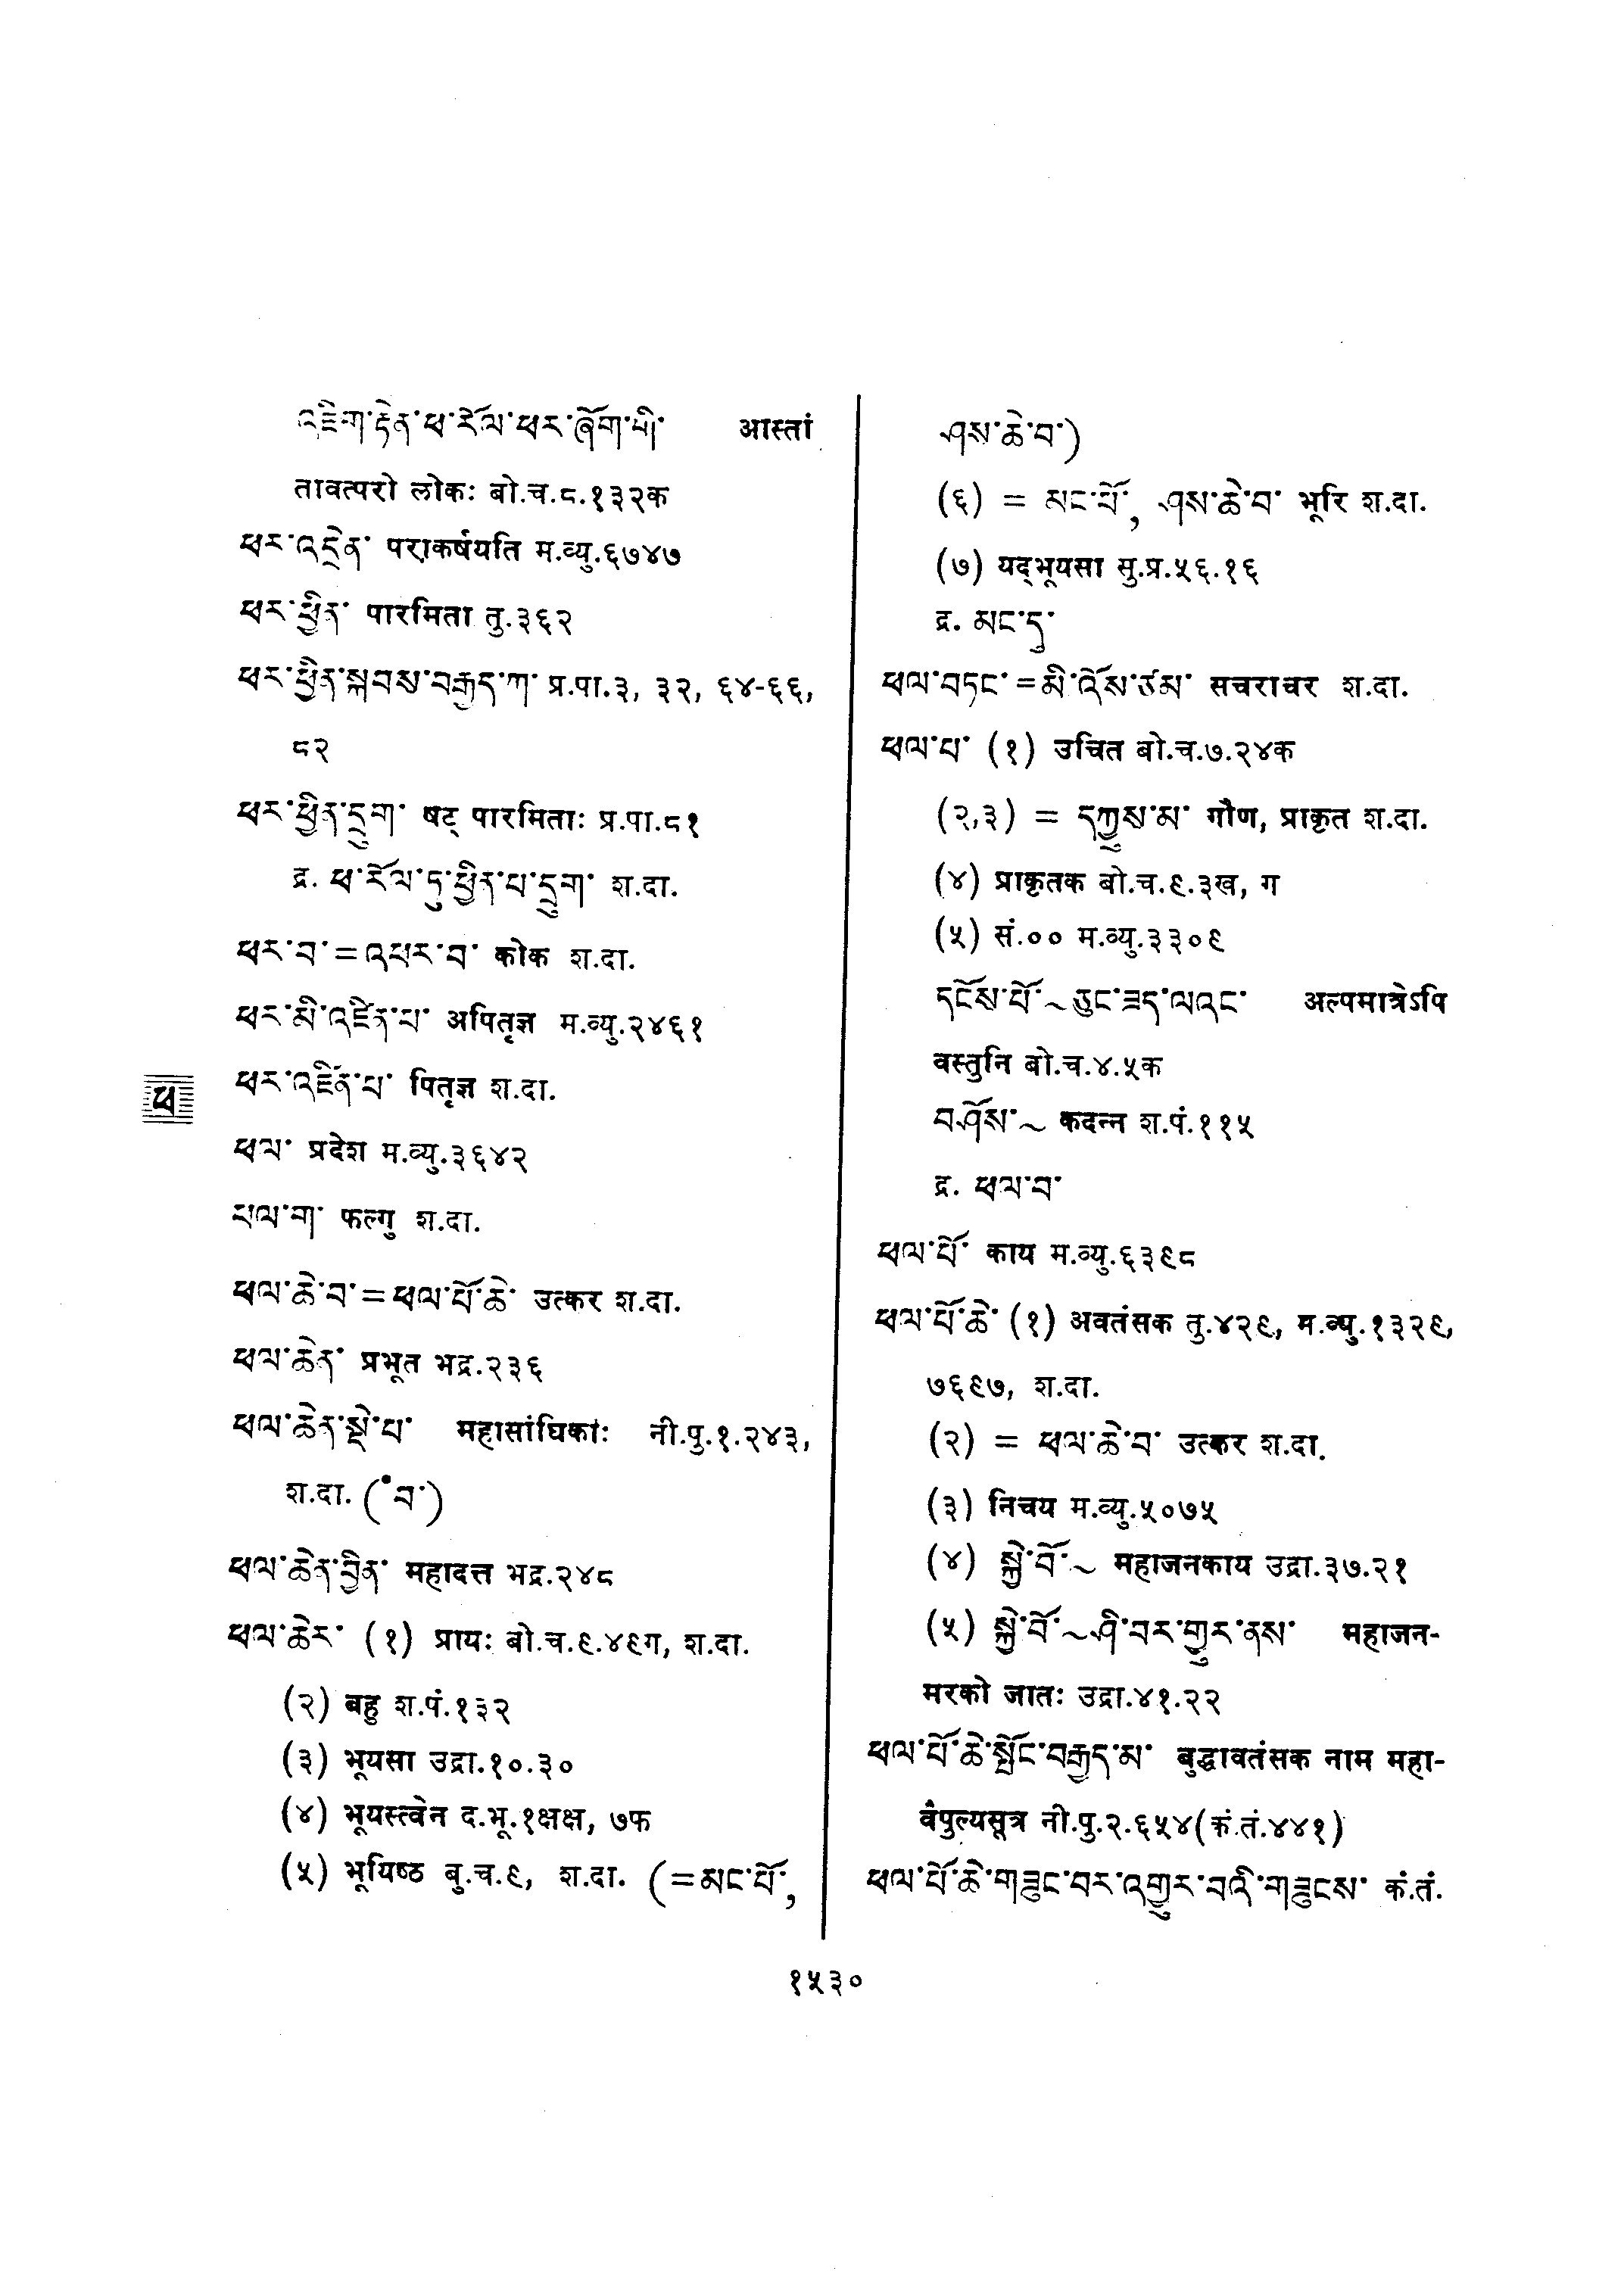 འཇིག་རྟེན་ཕ་རོལ་ཕར་ཞོག་པི་ आस्तां
तावत्परो लोकः बो.च.८.१३२क
ཕར་འདྲེན་ पराकर्षयति म.व्यु.६७४७
ཕར་ཕྱིན་ पारमिता तु.३६२
ཕར་ཕྱིན་སྐབས་བརྒྱད་ཀ་ प्र.पा.३, ३२, ६४-६६,
८२
ཕར་ཕྱིན་དྲུག་ षट् पारमिताः प्र.पा.८१
द्र. ཕ་རོལ་ཏུ་ཕྱིན་པ་དྲུག་ श.दा.
ཕར་བ་=འཕར་བ་ कोक श.दा.
ཕར་མི་འཛིན་པ་ अपितृज्ञ म.व्यु.२४६१
ཕར་འཛིན་པ་ पितृज्ञ श.दा.
ཕ
ཕལ་ प्रदेश म.व्यु.३६४२
ཕལ་ག་ फल्गु श.दा.
ཕལ་ཆེ་བ་=ཕལ་པོ་ཆེ་ उत्कर श.दा.
ཕལ་ཆེན་ प्रभूत भद्र.२३६
ཕལ་ཆེན་སྡེ་པ་ महासांघिकाः नी.पु.१.२४३,
श.दा. (༠བ་)
ཕལ་ཆེན་བྱིན་ महादत्त भद्र.२४८
ཕལ་ཆེར་ (१) प्रायः बो.च.९.४९ग, श.दा.
(२) बहु श.पं.१३२
(३) भूयसा उद्रा.१०.३०
(४) भूयस्त्वेन द.भू.१क्षक्ष, ७फ
(५) भूयिष्ठ बु.च.९, श.दा. (=མང་པོ་,
ཤས་ཆེ་བ་)
(६) = མང་པོ་, ཤས་ཆེ་བ་ भूरि श.दा.
(७) यद्भूयसा सु.प्र.५६.१६
द्र. མང་དུ་
ཕལ་བཏང་=མི་འོས་ཙམ་ सचराचर श.दा.
ཕལ་པ་ (१) उचित बो.च.७.२४क
(२,३) = དཀྱུས་མ་ गौण, प्राकृत श.दा.
(४) प्राकृतक बो.च.९.३ख, ग
(५) सं.०० म.व्यु.३३०९
དངོས་པོ་~ཅུང་ཟད་ལའང་ अल्पमात्रेऽपि
वस्तुनि बो.च.४.५क
བཤོས་~ कदन्न श.पं.११५
द्र. ཕལ་བ་
ཕལ་པོ་ काय म.व्यु.६३९८
ཕལ་པོ་ཆེ་ (१) अवतंसक तु.४२९, म.व्यु.१३२९,
७६९७, श.दा.
(२) = ཕལ་ཆེ་བ་ उत्कर श.दा.
(३) निचय म.व्यु.५०७५
(४) སྐྱེ་བོ་~ महाजनकाय उद्रा.३७.२१
(५) སྐྱེ་བོ་~ཤི་བར་གྱུར་ནས་ महाजन-
मरको जातः उद्रा.४१.२२
ཕལ་པོ་ཆེ་སྤོང་བརྒྱད་མ་ बुद्धावतंसक नाम महा-
वैपुल्यसूत्र नी.पु.२.६५४(कं.तं.४४१)
ཕལ་པོ་ཆེ་གཟུང་བར་འགྱུར་བའི་གཟུངས་ कं.तं.
१५३०